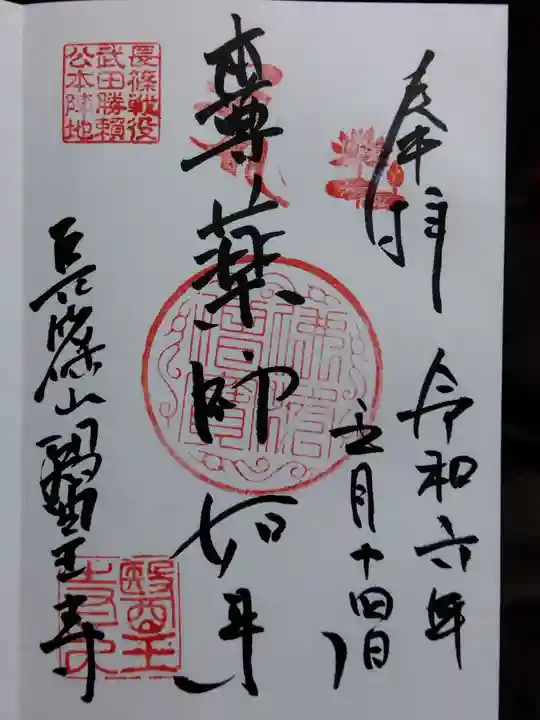 奉拝
令和六年
五月十四日
本尊薬師如来
長篠山醫王寺
長篠戦役
武田勝頼
公本陣地
佛法僧寶